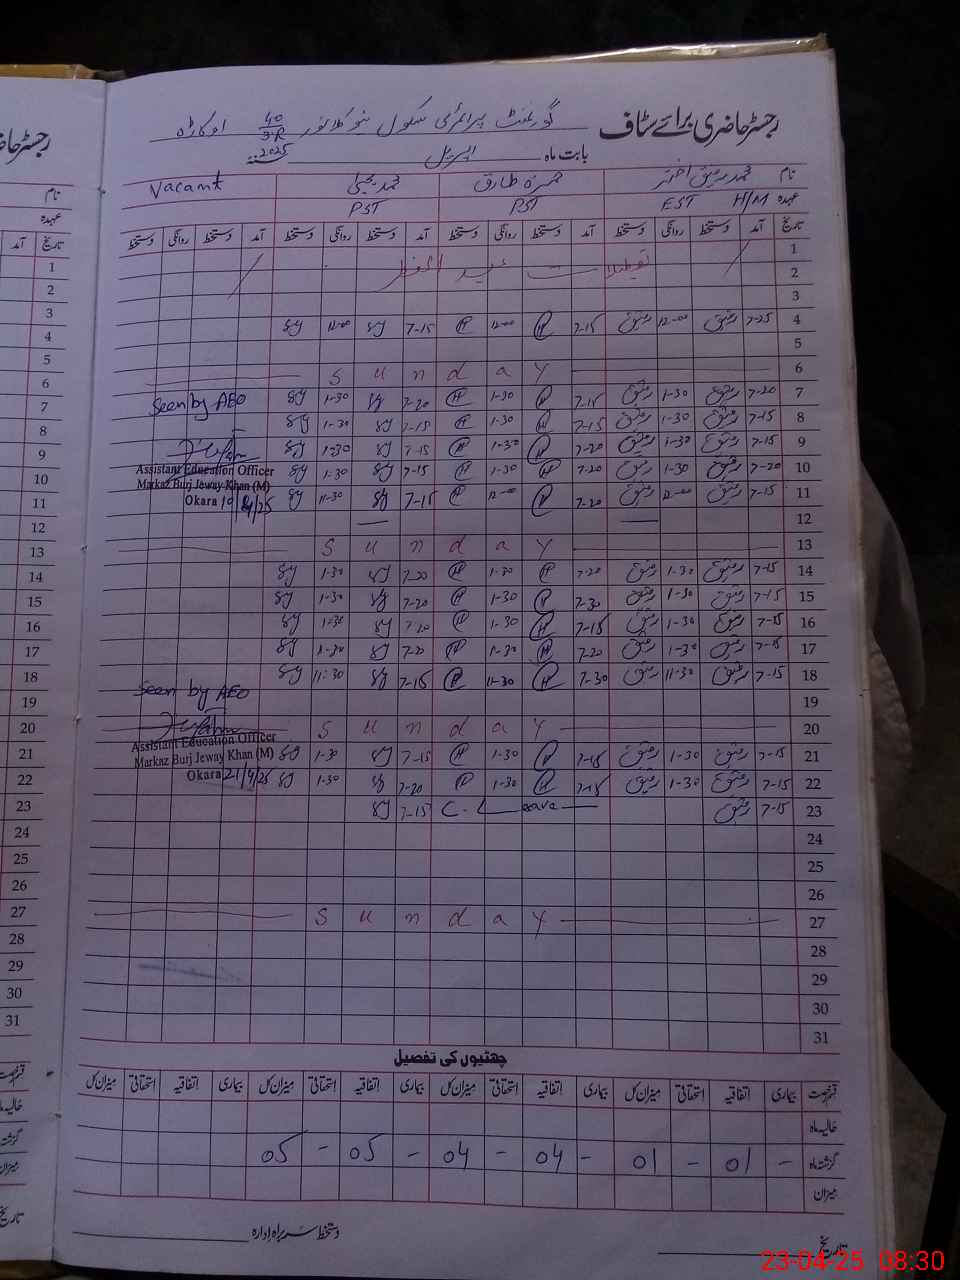 رجسٹر حاضری برائے سٹاف گورنمنٹ پرائمری سکول 40/3.R اوکاڑہ
بابت ماہ اپریل 2025
نام محمد رفیق اختر حمزہ طارق محمد یحیٰی Vacant
عہدہ H/M EST PST PST
تاریخ آمد دستخط روانگی دستخط آمد دستخط روانگی دستخط آمد دستخط روانگی دستخط آمد دستخط روانگی دستخط
1
2 تعطیلات عید الفطر
3
4 7-25 رفیق 12-00 رفیق 7-15 H 12-00 H 7-15 12-00
5
6 Sunday
7 7-20 رفیق 1-30 رفیق 7-15 H 1-30 H 7-20 1-30 Seen by AEO
8 7-15 رفیق 1-30 رفیق 7-15 H 1-30 H 7-15 1-30
9 7-15 رفیق 1-30 رفیق 7-20 H 1-30 H 7-15 1-30
10 7-20 رفیق 1-30 رفیق 7-20 H 1-30 H 7-15 1-30 Assistant Education Officer
Markaz Burj Jeway Khan (M)
11 7-15 رفیق 12-00 رفیق 7-20 H 12-00 H 7-15 11-30 Okara 10/4/25
12
13 Sunday
14 7-15 رفیق 1-30 رفیق 7-20 H 1-30 H 7-20 1-30
15 7-15 رفیق 1-30 رفیق 7-30 H 1-30 H 7-20 1-30
16 7-15 رفیق 1-30 رفیق 7-15 H 1-30 H 7-20 1-30
17 7-15 رفیق 1-30 رفیق 7-20 H 1-30 H 7-20 1-30
18 7-15 رفیق 11-30 رفیق 7-30 H 11-30 H 7-15 11:30
19 Seen by AEO
20 Sunday
Assistant Education Officer
21 7-15 رفیق 1-30 رفیق 7-15 H 1-30 H 7-15 1-30 Markaz Burj Jeway Khan (M)
22 7-15 رفیق 1-30 رفیق 7-15 H 1-30 H 7-20 1-30 Okara 21/4/25
23 7-15 رفیق C. Leave 7-15
24
25
26
27 Sunday
28
29
30
31
چھٹیوں کی تفصیل
قسم رخصت بیماری اتفاقیہ استحقاقی میزان کل بیماری اتفاقیہ استحقاقی میزان کل بیماری اتفاقیہ استحقاقی میزان کل بیماری اتفاقیہ استحقاقی میزان کل
حالیہ ماہ
گزشتہ ماہ - 01 - 01 - 04 - 04 - 05 - 05
میزان
تاریخ دستخط سربراہ ادارہ
23-04-25 08:30
رجسٹر حاضر
نام
عہدہ
تاریخ آمد
1
2
3
4
5
6
7
8
9
10
11
12
13
14
15
16
17
18
19
20
21
22
23
24
25
26
27
28
29
30
31
تاریخ